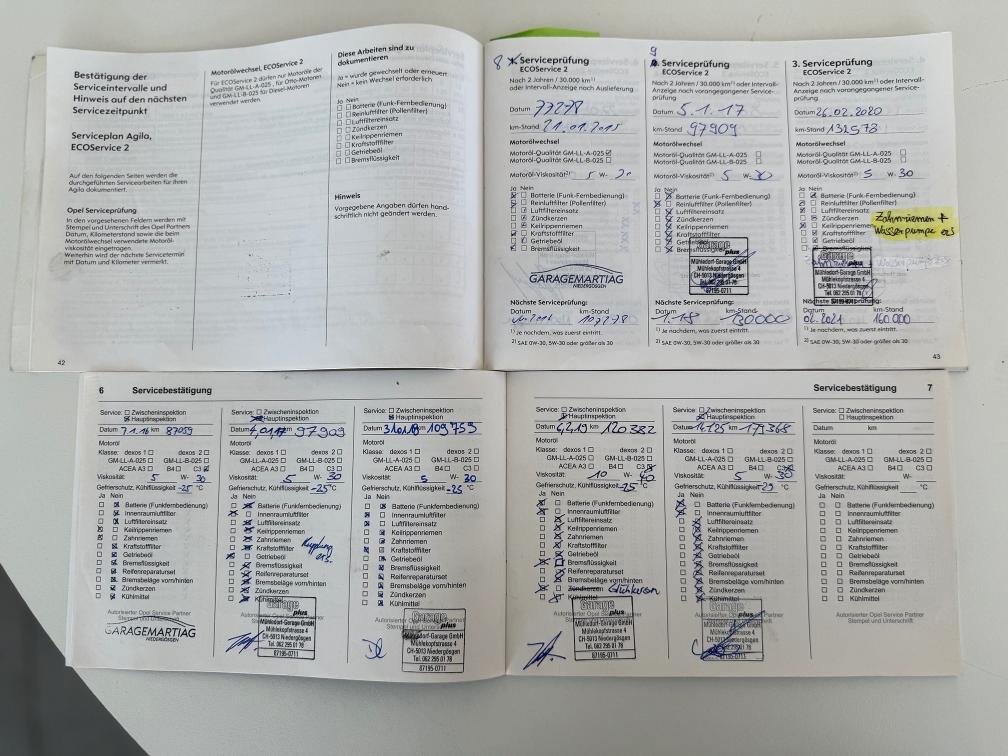 Bestätigung der
Serviceintervalle und
Hinweis auf den nächsten
Servicezeitpunkt
Serviceplan Agila,
ECOService 2
Auf den folgenden Seiten werden die
durchgeführten Servicearbeiten für Ihren
Agila dokumentiert.
Opel Serviceprüfung
In den vorgesehenen Feldern werden mit
Stempel und Unterschrift des Opel Partners
Datum, Kilometerstand sowie die beim
Motorölwechsel verwendete Motoröl-
viskosität eingetragen.
Weiterhin wird der nächste Servicetermin
mit Datum und Kilometer vermerkt.
42
Motorölwechsel, ECOService 2
Für ECOService 2 dürfen nur Motoröle der
Qualität GM-LL-A-025, für Otto-Motoren
und GM-LL-B-025 für Diesel-Motoren
verwendet werden.
Diese Arbeiten sind zu
dokumentieren
Ja = wurde gewechselt oder erneuert
Nein = kein Wechsel erforderlich
Ja Nein
Batterie (Funk-Fernbedienung)
Reinluftfilter (Pollenfilter)
Luftfiltereinsatz
Zündkerzen
Keilrippenriemen
Kraftstofffilter
Getriebeöl
Bremsflüssigkeit
Hinweis
Vorgegebene Angaben dürfen hand-
schriftlich nicht geändert werden.
8 Serviceprüfung
ECOService 2
Nach 2 Jahren / 30.000 km1)
oder Intervall-Anzeige nach Auslieferung
Datum 77278
km-Stand 21.01.2015
Motorölwechsel
Motoröl-Qualität GM-LL-A-025
Motoröl-Qualität GM-LL-B-025
Motoröl-Viskosität2) 5 W-
Ja Nein
Batterie (Funk-Fernbedienung)
Reinluftfilter (Pollenfilter)
Luftfiltereinsatz
Zündkerzen
Keilrippenriemen
Kraftstofffilter
Getriebeöl
Bremsflüssigkeit
GARAGEMARTIAG
NIEDERGÖSGEN
Nächste Serviceprüfung:
Datum km-Stand
107278
1) Je nachdem, was zuerst eintritt.
2) SAE 0W-30, 5W-30 oder größer als 30
9
Serviceprüfung
ECOService 2
Nach 2 Jahren / 30.000 km1) oder Intervall-
Anzeige nach vorangegangener Service-
prüfung
Datum 5.1.17
km-Stand 97909
Motorölwechsel
Motoröl-Qualität GM-LL-A-025
Motoröl-Qualität GM-LL-B-025
Motoröl-Viskosität2) 5 W-30
Ja Nein
Batterie (Funk-Fernbedienung)
Reinluftfilter (Pollenfilter)
Luftfiltereinsatz
Zündkerzen
Keilrippenriemen
Kraftstofffilter
Getriebeöl
Bremsflüssigkeit
Garage plus
Mühledorf-Garage GmbH
Mühlekopfstrasse 4
CH-5013 Niedergösgen
Tel. 062 295 01 78
87195-0711
Nächste Serviceprüfung:
Datum km-Stand
1.1.18 130000
1) Je nachdem, was zuerst eintritt.
2) SAE 0W-30, 5W-30 oder größer als 30
3. Serviceprüfung
ECOService 2
Nach 2 Jahren / 30.000 km1) oder Intervall-
Anzeige nach vorangegangener Service-
prüfung
Datum 26.02.2020
km-Stand 132573
Motorölwechsel
Motoröl-Qualität GM-LL-A-025
Motoröl-Qualität GM-LL-B-025
Motoröl-Viskosität2) 5 W-30
Ja Nein
Batterie (Funk-Fernbedienung)
Reinluftfilter (Pollenfilter)
Luftfiltereinsatz
Zündkerzen
Keilrippenriemen
Kraftstofffilter
Getriebeöl
Bremsflüssigkeit
Zahnriemen +
Wasserpumpe ers
Garage plus
Mühledorf-Garage GmbH
Mühlekopfstrasse 4
CH-5013 Niedergösgen
Tel. 062 295 01 78
87195-0711
Nächste Serviceprüfung:
Datum km-Stand
02.2021 160.000
1) Je nachdem, was zuerst eintritt.
2) SAE 0W-30, 5W-30 oder größer als 30
43
6 Servicebestätigung
Service: Zwischeninspektion
Hauptinspektion
Datum 7.1.16 km 87059
Motoröl
Klasse: dexos 1 dexos 2
GM-LL-A-025 GM-LL-B-025
ACEA A3 B4 C3
Viskosität: 5 W- 30
Gefrierschutz, Kühlflüssigkeit -25 °C
Ja Nein
Batterie (Funkfernbedienung)
Innenraumluftfilter
Luftfiltereinsatz
Keilrippenriemen
Zahnriemen
Kraftstofffilter
Getriebeöl
Bremsflüssigkeit
Reifenreparaturset
Bremsbeläge vorn/hinten
Zündkerzen
Kühlmittel
Autorisierter Opel Service Partner
Stempel und Unterschrift
GARAGEMARTIAG
NIEDERGÖSGEN
Service: Zwischeninspektion
Hauptinspektion
Datum 4.01.17 97909
Motoröl
Klasse: dexos 1 dexos 2
GM-LL-A-025 GM-LL-B-025
ACEA A3 B4 C3
Viskosität: 5 W- 30
Gefrierschutz, Kühlflüssigkeit -25°C
Ja Nein
Batterie (Funkfernbedienung)
Innenraumluftfilter
Luftfiltereinsatz
Keilrippenriemen
Zahnriemen
Kraftstofffilter
Getriebeöl
Bremsflüssigkeit
Reifenreparaturset
Bremsbeläge vorn/hinten
Zündkerzen
Kühlmittel
Kupplung
ers.
Garage plus
Mühledorf-Garage GmbH
Mühlekopfstrasse 4
CH-5013 Niedergösgen
Tel. 062 295 01 78
87195-0711
Service: Zwischeninspektion
Hauptinspektion
Datum 31.01.18 km 109759
Motoröl
Klasse: dexos 1 dexos 2
GM-LL-A-025 GM-LL-B-025
ACEA A3 B4 C3
Viskosität: 5 W- 30
Gefrierschutz, Kühlflüssigkeit -25 °C
Ja Nein
Batterie (Funkfernbedienung)
Innenraumluftfilter
Luftfiltereinsatz
Keilrippenriemen
Zahnriemen
Kraftstofffilter
Getriebeöl
Bremsflüssigkeit
Reifenreparaturset
Bremsbeläge vorn/hinten
Zündkerzen
Kühlmittel
Autorisierter Opel Service Partner
Garage plus
Mühledorf-Garage GmbH
Mühlekopfstrasse 4
CH-5013 Niedergösgen
Tel. 062 295 01 78
87195-0711
Servicebestätigung 7
Service: Zwischeninspektion
Hauptinspektion
Datum 4.2.19 km 120382
Motoröl
Klasse: dexos 1 dexos 2
GM-LL-A-025 GM-LL-B-025
ACEA A3 B4 C3
Viskosität: 10 W- 40
Gefrierschutz, Kühlflüssigkeit -25 °C
Ja Nein
Batterie (Funkfernbedienung)
Innenraumluftfilter
Luftfiltereinsatz
Keilrippenriemen
Zahnriemen
Kraftstofffilter
Getriebeöl
Bremsflüssigkeit
Reifenreparaturset
Bremsbeläge vorn/hinten
Zündkerzen Glühkerzen
Kühlmittel
Garage plus
Mühledorf-Garage GmbH
Mühlekopfstrasse 4
CH-5013 Niedergösgen
Tel. 062 295 01 78
87195-0711
Service: Zwischeninspektion
Hauptinspektion
Datum km
Motoröl
Klasse: dexos 1 dexos 2
GM-LL-A-025 GM-LL-B-025
ACEA A3 B4 C3
Viskosität: 5 W- 30
Gefrierschutz, Kühlflüssigkeit -29 °C
Ja Nein
Batterie (Funkfernbedienung)
Innenraumluftfilter
Luftfiltereinsatz
Keilrippenriemen
Zahnriemen
Kraftstofffilter
Getriebeöl
Bremsflüssigkeit
Reifenreparaturset
Bremsbeläge vorn/hinten
Zündkerzen
Kühlmittel
Garage plus
Mühledorf-Garage GmbH
Mühlekopfstrasse 4
CH-5013 Niedergösgen
Tel. 062 295 01 78
87195-0711
Service: Zwischeninspektion
Hauptinspektion
Datum km
Motoröl
Klasse: dexos 1 dexos 2
GM-LL-A-025 GM-LL-B-025
ACEA A3 B4 C3
Viskosität: W-
Gefrierschutz, Kühlflüssigkeit °C
Ja Nein
Batterie (Funkfernbedienung)
Innenraumluftfilter
Luftfiltereinsatz
Keilrippenriemen
Zahnriemen
Kraftstofffilter
Getriebeöl
Bremsflüssigkeit
Reifenreparaturset
Bremsbeläge vorn/hinten
Zündkerzen
Kühlmittel
Autorisierter Opel Service Partner
Stempel und Unterschrift